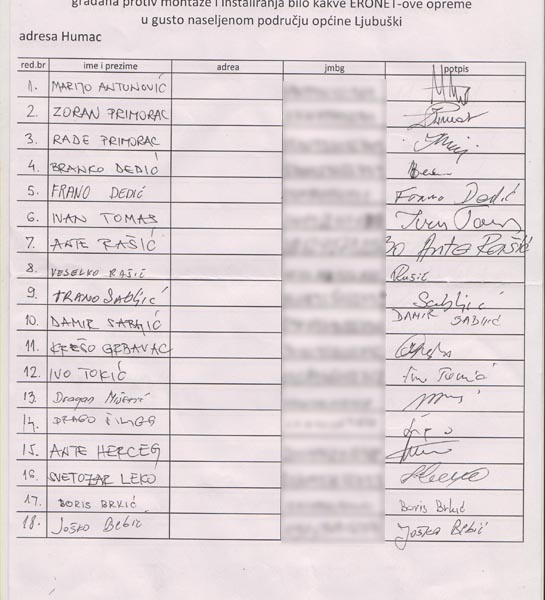 građana protiv montaže i instaliranja bilo kakve ERONET-ove opreme
u gusto naseljenom području općine Ljubuški
adresa Humac
red.br ime i prezime adrea jmbg potpis
1. MARIJO ANTUNOVIĆ
2. ZORAN PRIMORAC
3. RADE PRIMORAC
4. BRANKO DEDIĆ
5. FRANO DEDIĆ Frano Dedić
6. IVAN TOMAS Ivan Tomas
7. ANTE RAŠIĆ Ante Rašić
8. VESELKO RAŠIĆ Rašić
9. FRANO SABLJIĆ Sabljić
10. DAMIR SABLJIĆ DAMIR SABLJIĆ
11. KREŠO GRBAVAC
12. IVO TOKIĆ
13. Dragan
14. DRAGO
15. ANTE HERCEG
16. SVETOZAR LEKO
17. BORIS BRKIĆ Boris Brkić
18. Joško Bebić Joško Bebić